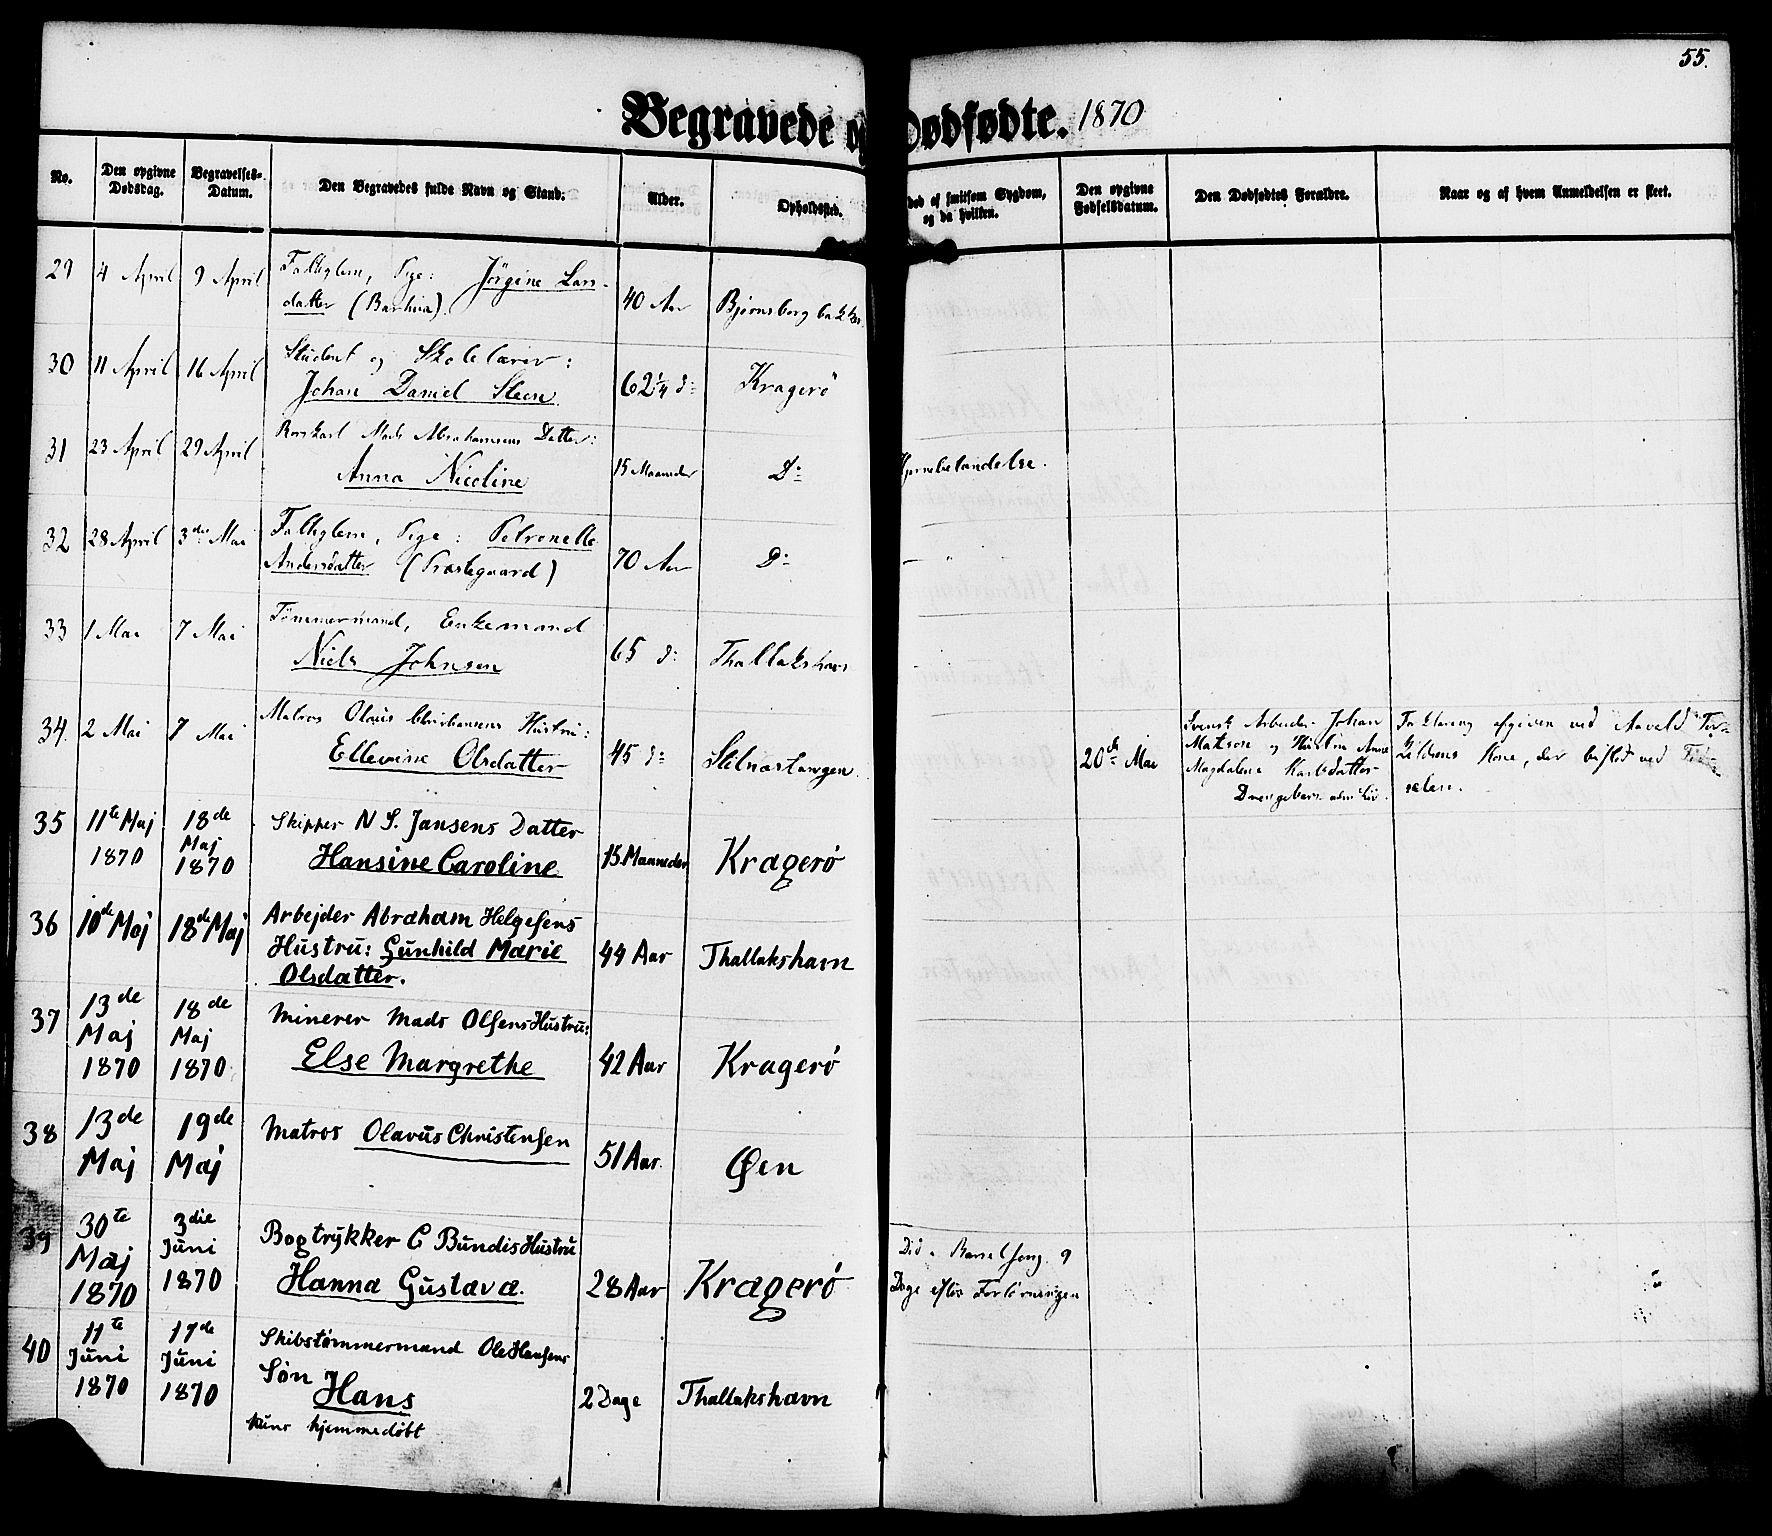 55.
Begravede og Dødfødte. 1870
No.
Den opgivne Dødsdag.
Begravelses-Datum.
Den Begravedes fulde Navn og Stand.
Alder.
Opholdssted.
død af smitsom Sygdom, og da hvilken.
Den opgivne Fødselsdatum.
Den Dødfødtes Forældre.
Naar og af hvem Anmeldelsen er skeet.
29 4 April 9 April Pige: Jörgine Lars-
datter 40 Aar Bjørnsborgbakken
30 11 April 16 April Student og Skolelærer:
Johan Daniel Steen 62 1/4 d: Kragerö
31 23 April 29 April Mads Abrahamsens Datter:
Anna Nicoline 15 Maaneder D: Hjernebetændelse.
32 28 April 3die Mai Pige: Petronelle
Andersdatter (Præstegaard) 70 Aar D: "
33 1 Mai 7 Mai Tömmermand, Enkemand
Niels Johnsen 65 d: Thallakshavn
34. 2 Mai 7 Mai Matros Olaus Christiansens Hustru:
Ellevine Olsdatter 45 d: Stilnæstangen
20de Mai
Svensk Arbeider Johan
Matson og Hustru Anne
Magdalene Karlsdatter
Drengebarn uden Liv.
Forklaring afgiven ved
Kone, der bistod ved Föd-
selen.
35 11te Maj 1870 18de Maj 1870 Skipper N S. Jansens Datter
Hansine Caroline 15 Maaneder Kragerø
36 10de Maj 18de Maj Arbejder Abraham Helgesens
Hustru: Gunhild Marie
Olsdatter. 44 Aar Thallakshavn
37 13de Maj 1870 18de Maj 1870 Minerer Mads Olsens Hustru:
Else Margrethe 42 Aar Kragerø
38 13de Maj 19de Maj Matros Olavus Christensen 51 Aar. Øen
39 30te Maj 1870 3die Juni 1870 Bogtrykker C Bundis Hustru
Hanna Gustava. 28 Aar Kragerø
Död i Barselseng. 9
Dage efter Forlösningen
40 11te Juni 1870 17de Juni 1870 Skibstømmermand Ole Hansens
Søn Hans 2 Dage Thallakshavn
kuns hjemmedøbt